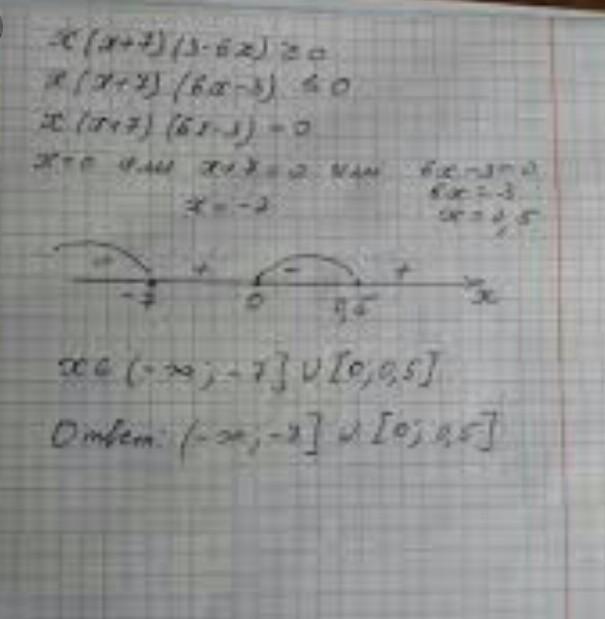 x(x+7)(3-6x) ≥ 0
x(x+7)(6x-3) ≤ 0
x(x+7)(6x-3) = 0
x=0 или x+7=0 или 6x-3=0
x=-7 6x=3
x=0,5
- + - +
-7 0 0,5 x
x∈(-∞; -7] ∪ [0; 0,5]
Ответ: (-∞; -7] ∪ [0; 0,5]